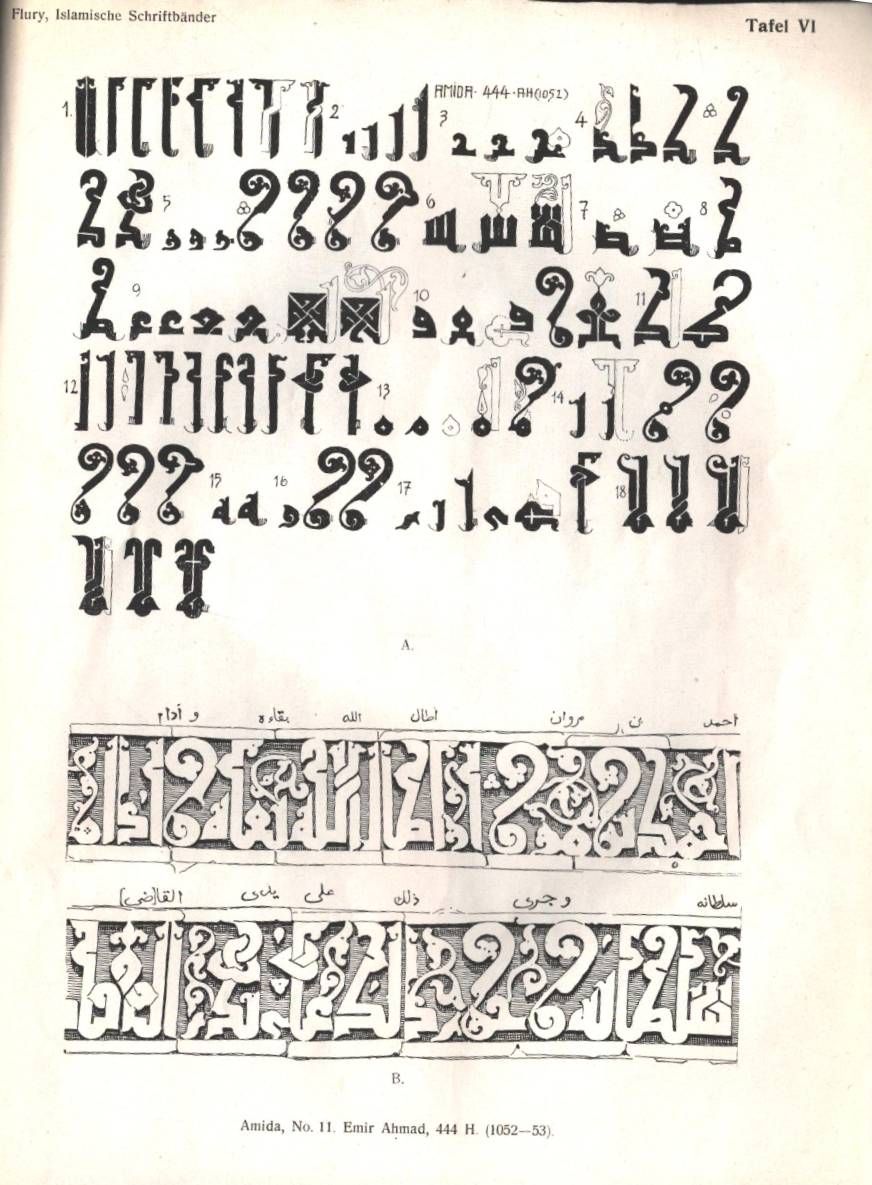 Flury, Islamische Schriftbänder
Tafel VI
1. 2 AMIDA · 444 · AH (1052)
3 4
5 6 7 8
9 10 11
12 13 14
15 16 17 18
A.
احمد بن مروان اطال الله بقاءه و أدام
سلطانه و جرى ذلك على يدى القا[ضى]
B.
Amida, No. 11. Emir Ahmad, 444 H. (1052—53).